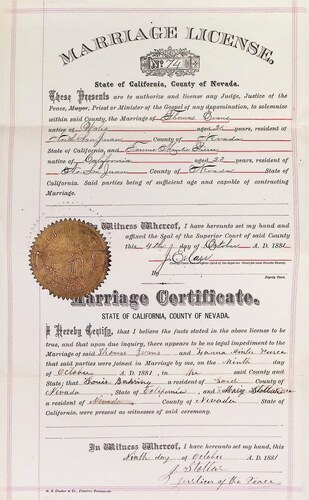 MARRIAGE LICENSE,
No. 74
State of California, County of Nevada.
These Presents are to authorize and license any Judge, Justice of the
Peace, Mayor, Priest or Minister of the Gospel of any denomination, to solemnize
within said County, the Marriage of Thomas Evans
native of Wales aged resident of
North San Juan County of Nevada
State of California, and
native of California aged 22 years, resident of
No San Juan County of Nevada State of
California. Said parties being of sufficient age and capable of contracting
Marriage.
In Witness Whereof, I have hereunto set my hand and
affixed the Seal of the Superior Court of said County
this 4th day of October A. D. 1881
By
Deputy Clerk.
Marriage Certificate.
STATE OF CALIFORNIA, COUNTY OF NEVADA.
I Hereby Certify, that I believe the facts stated in the above license to
be true, and that upon due inquiry, there appears to be no legal impediment to the
Marriage of said Thomas Evans and
that said parties were joined in Marriage by me, on the Ninth day
of October A. D. 1881, in the said County and
State; that a resident of County of
Nevada, State of California, and Mary Stellar
a resident of Nevada County of Nevada State of
California, were present as witnesses of said ceremony.
In Witness Whereof, I have hereunto set my hand, this
Ninth day of October A. D. 1881
J Stellar
Justice of the Peace